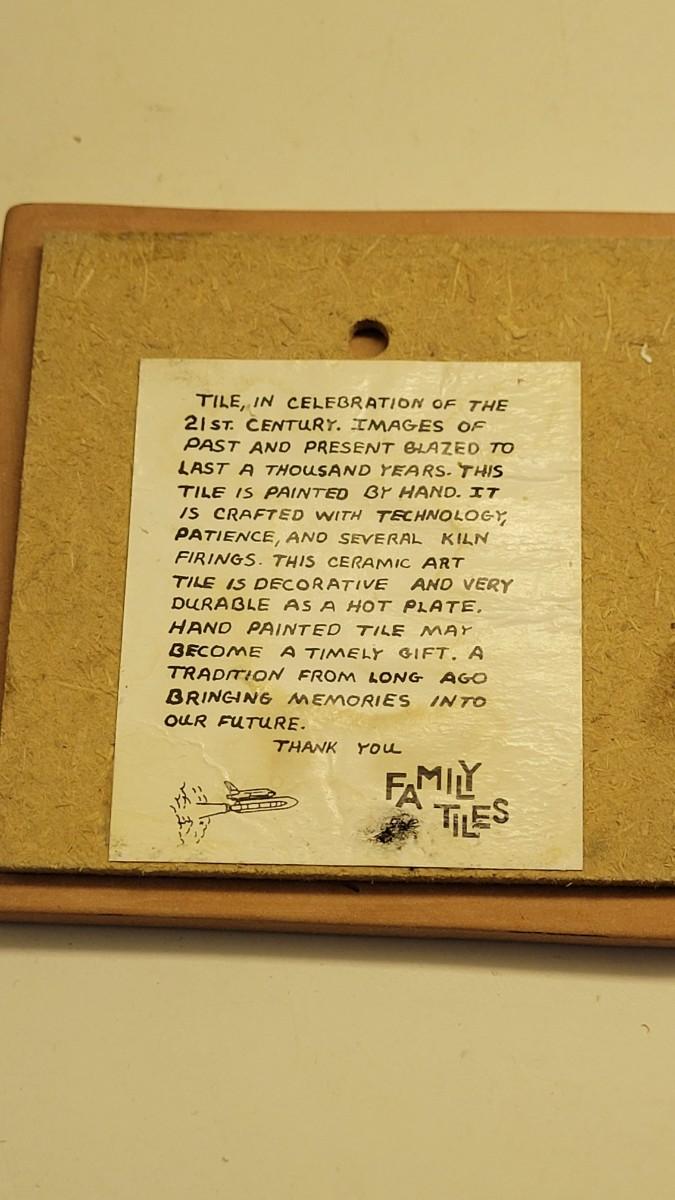 TILE, IN CELEBRATION OF THE
21ST. CENTURY. IMAGES OF
PAST AND PRESENT GLAZED TO
LAST A THOUSAND YEARS. THIS
TILE IS PAINTED BY HAND. IT
IS CRAFTED WITH TECHNOLOGY,
PATIENCE, AND SEVERAL KILN
FIRINGS. THIS CERAMIC ART
TILE IS DECORATIVE AND VERY
DURABLE AS A HOT PLATE.
HAND PAINTED TILE MAY
BECOME A TIMELY GIFT. A
TRADITION FROM LONG AGO
BRINGING MEMORIES INTO
OUR FUTURE.
THANK YOU
FAMILY
TILES